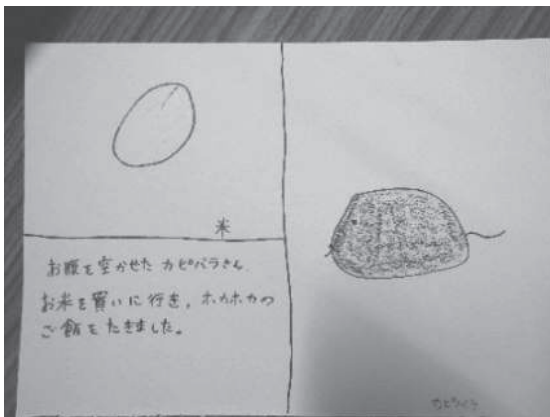 米
お腹を空かせた カピバラさん
お米を買いに行き、ホカホカの
ご飯をたきました。
カピバラ